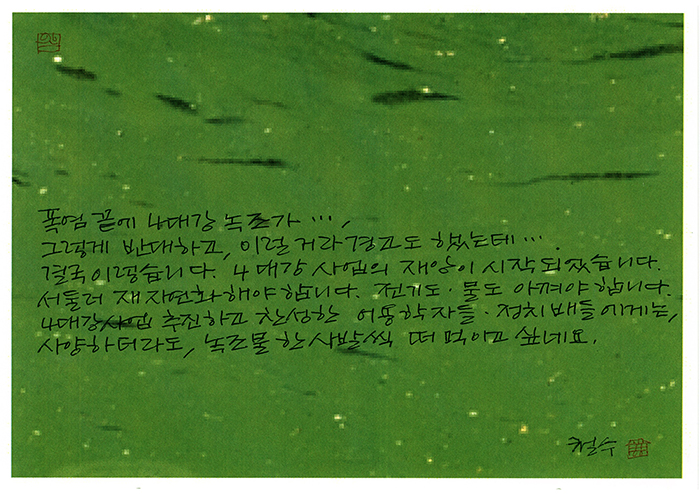 폭염 끝에 4대강 녹조가 ···,
그렇게 반대하고, 이럴거라 경고도 했는데 ···.
결국 이렇습니다. 4대강 사업의 재앙이 시작되었습니다.
서둘러 재자연화해야합니다. 전기도·물도 아껴야합니다.
4대강사업 추진하고 찬성한 어용학자들·정치배들에게는,
사양하더라도, 녹조물 한사발씩 떠 먹이고 싶네요.
철수